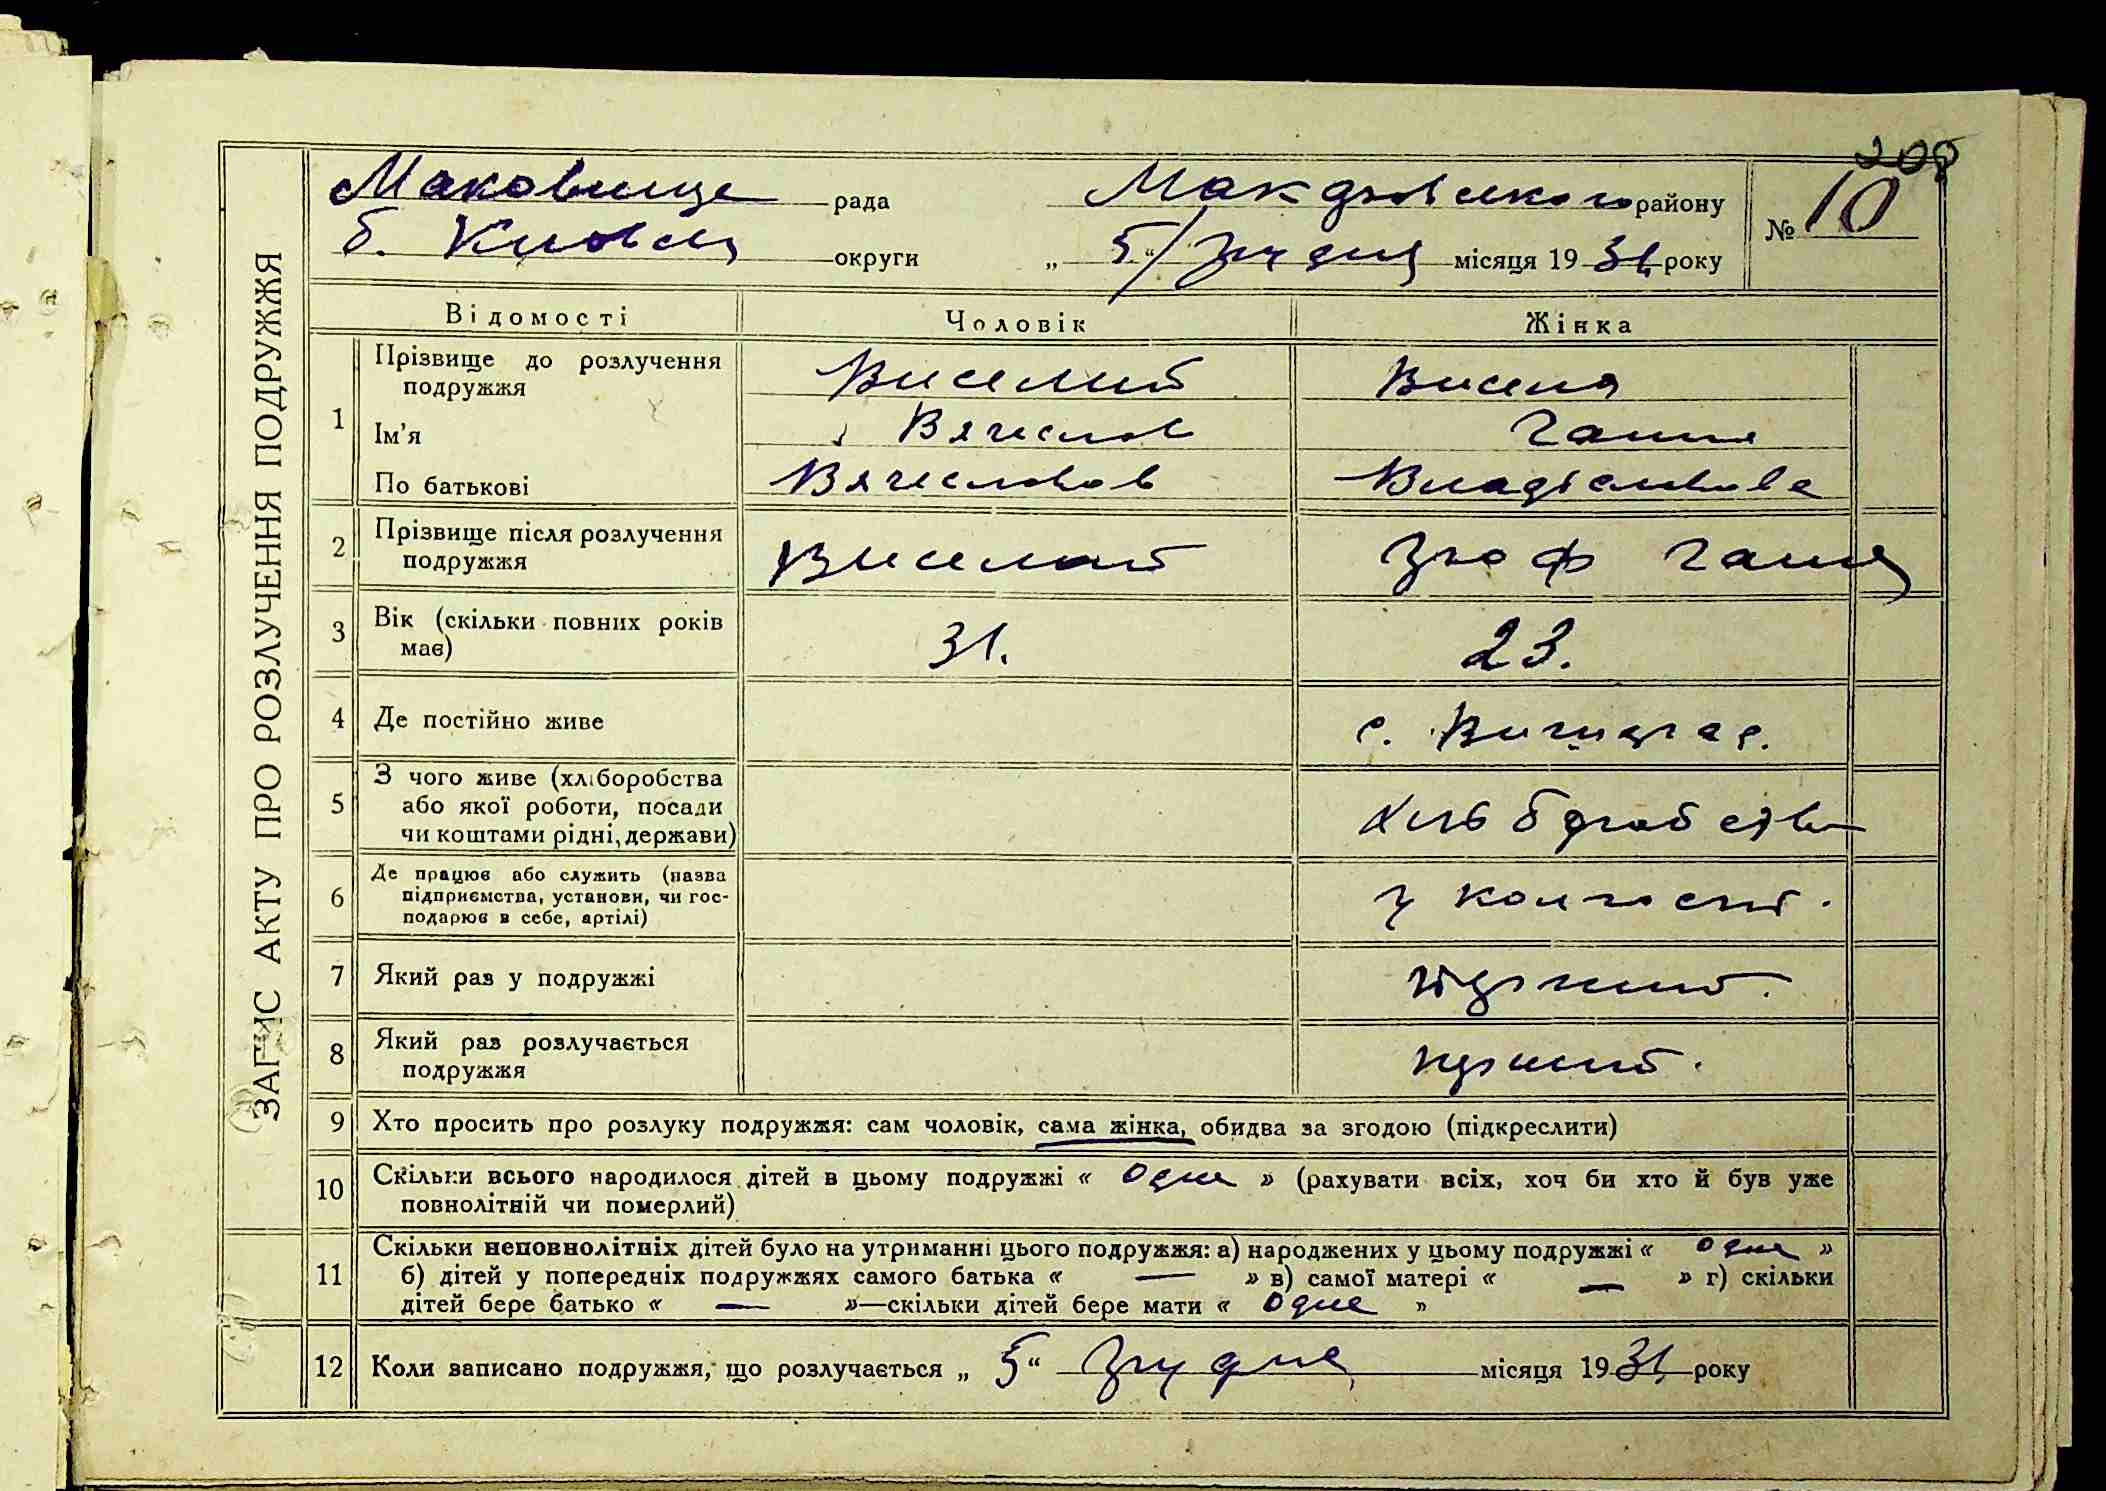 208
Маковище рада Макарівського району № 10
б. Київськ округи „ 5 “ грудня місяця 1931 року
ЗАПИС АКТУ ПРО РОЗЛУЧЕННЯ ПОДРУЖЖЯ
Відомості Чоловік Жінка
1 Прізвище до розлучення подружжя Виселий Висела
Ім'я Вячеслав Ганна
По батькові Вячеславов Владіславова
2 Прізвище після розлучення подружжя Виселий Ганна
3 Вік (скільки повних років має) 31. 23.
4 Де постійно живе с.
5 З чого живе (хліборобства або якої роботи, посади чи коштами рідні, держави) хліборобство
6 Де працює або служить (назва підприємства, установи, чи господарює в себе, артілі) у колгоспі.
7 Який раз у подружжі перший.
8 Який раз розлучається подружжя перший.
9 Хто просить про розлуку подружжя: сам чоловік, сама жінка, обидва за згодою (підкреслити)
10 Скільки всього народилося дітей в цьому подружжі « одне » (рахувати всіх, хоч би хто й був уже
повнолітній чи померлий)
11 Скільки неповнолітніх дітей було на утриманні цього подружжя: а) народжених у цьому подружжі « одне »
б) дітей у попередніх подружжях самого батька « — » в) самої матері « — » г) скільки
дітей бере батько « — »—скільки дітей бере мати « одне »
12 Коли записано подружжя, що розлучається „ 5 “ грудня місяця 1931 року